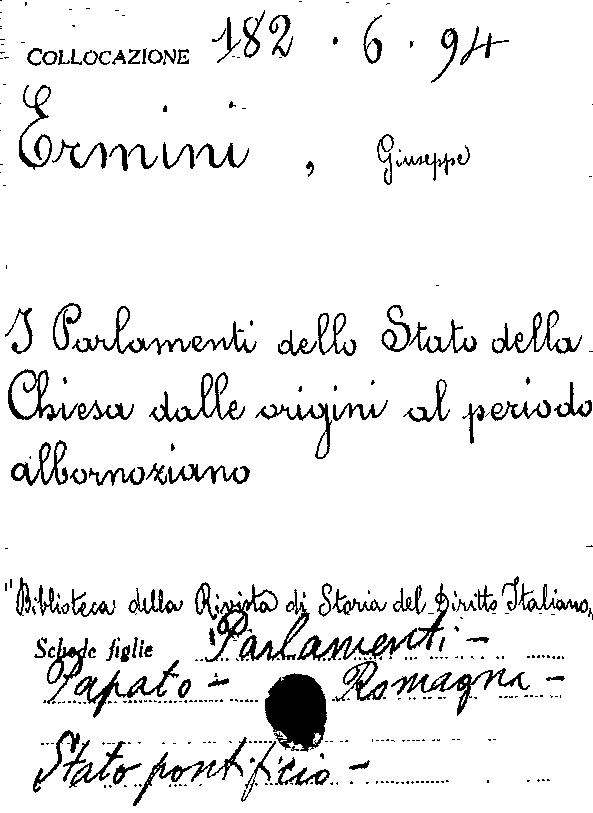 COLLOCAZIONE 182 . 6 . 94
Ermini , Giuseppe
I Parlamenti dello Stato della
Chiesa dalle origini al periodo
albornoziano
"Biblioteca della Rivista di Storia del Diritto Italiano,
Schede figlie Parlamenti -
Papato - Romagna -
Stato pontificio -